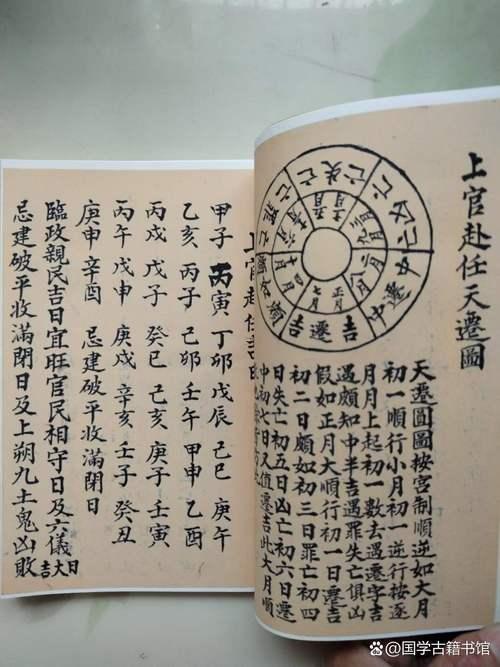 上官赴任天遷圖
失亡
凶亡
中遷
吉遷
罪亡
正月
七月
天遷圓圖按宮制順逆如大月
初一順行小月初一逆行按逐
月月上起初一數去遇遷字吉
遇頗知中半吉遇罪失亡俱凶
假如正月大順行初一日遷吉
初二日頗如初三日罪亡初四
日失亡初五日凶亡初六日遷
中初七日又值遷吉此大月順
上官赴任
甲子 丙寅 丁卯 戊辰 己巳 庚午
乙亥 丙子 己卯 壬午 甲申 乙酉
丙戌 戊子 癸巳 己亥 庚子 壬寅
丙午 戊申 庚戌 辛亥 壬子 癸丑
庚申 辛酉 忌建破平收滿閉日
臨政親民吉日宜旺官民相守日及六儀日大吉
忌建破平收滿閉日及上朔九土鬼凶敗
@国学古籍书馆